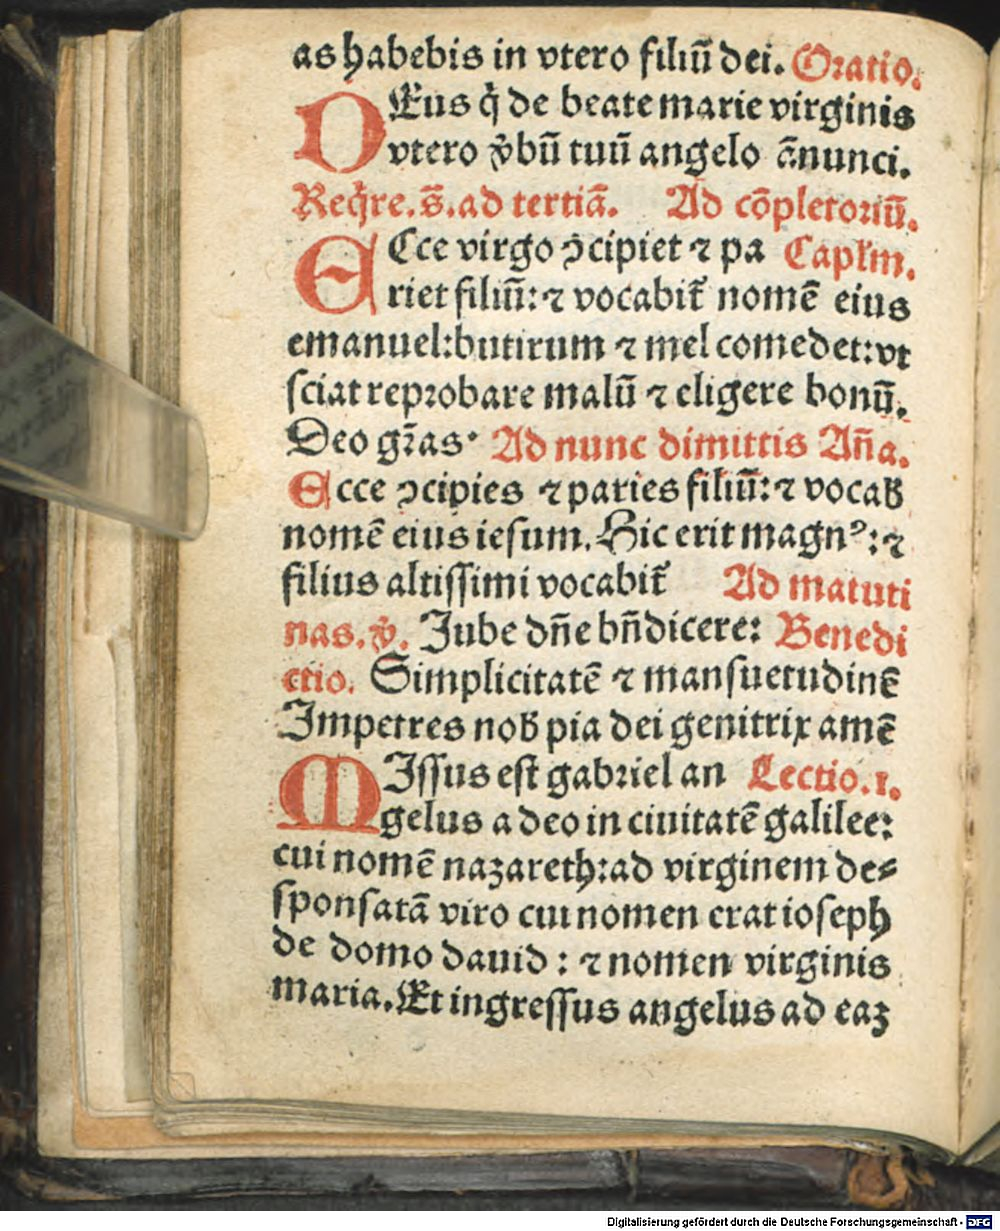 as habebis in vtero filiū dei. Oratio.
DEus q̄ de beate marie virginis
vtero v̄bū tuū angelo ānunci.
Req̄re. s̄. ad tertiā. Ad cōpletoriū.
ECce virgo ꝯcipiet ⁊ pa Capl'm.
riet filiū: ⁊ vocabit᷑ nomē eius
emanuel: butirum ⁊ mel comedet: vt
sciat reprobare malū ⁊ eligere bonū.
Deo gr̄as. Ad nunc dimittis Aña.
Ecce ꝯcipies ⁊ paries filiū: ⁊ vocab̄
nomē eius iesum. Hic erit magnꝰ: ⁊
filius altissimi vocabit᷑ Ad matuti
nas. v̄. Jube dn̄e bn̄dicere: Benedi
ctio. Simplicitatē ⁊ mansuetudinē
Impetres nob̄ pia dei genitrix amē
MIssus est gabriel an Lectio. 1.
gelus a deo in ciuitatē galilee:
cui nomē nazareth: ad virginem de⸗
sponsatā viro cui nomen erat ioseph
de domo dauid: ⁊ nomen virginis
maria. Et ingressus angelus ad eaz
Digitalisierung gefördert durch die Deutsche Forschungsgemeinschaft - DFG